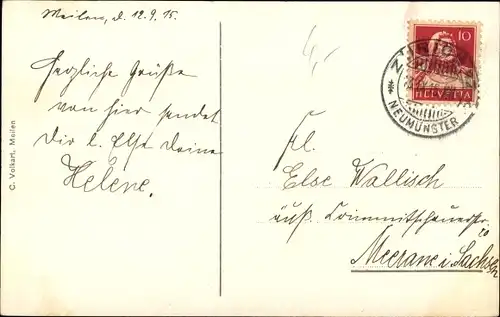 Meilen, d. 12.9.15.
Herzliche Grüße
von hier sendet
dir l. Else deine
Helene.
C. Volkart, Meilen
10
HELVETIA
ZÜRICH
NEUMÜNSTER
Frl.
Else Wallisch
äuß.
Meerane i. Sachsen